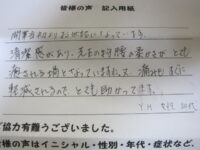 皆様の声 記入用紙
開業当初よりお世話になっています。
清潔感があり、先生のお人柄の柔かさが とても
癒される場となっています。又、痛みがすぐに
軽減されるので、とても助かってます。
Y.H 女性 50代
協力有難うございました。
皆様の声はイニシャル・性別・年代・症状など、